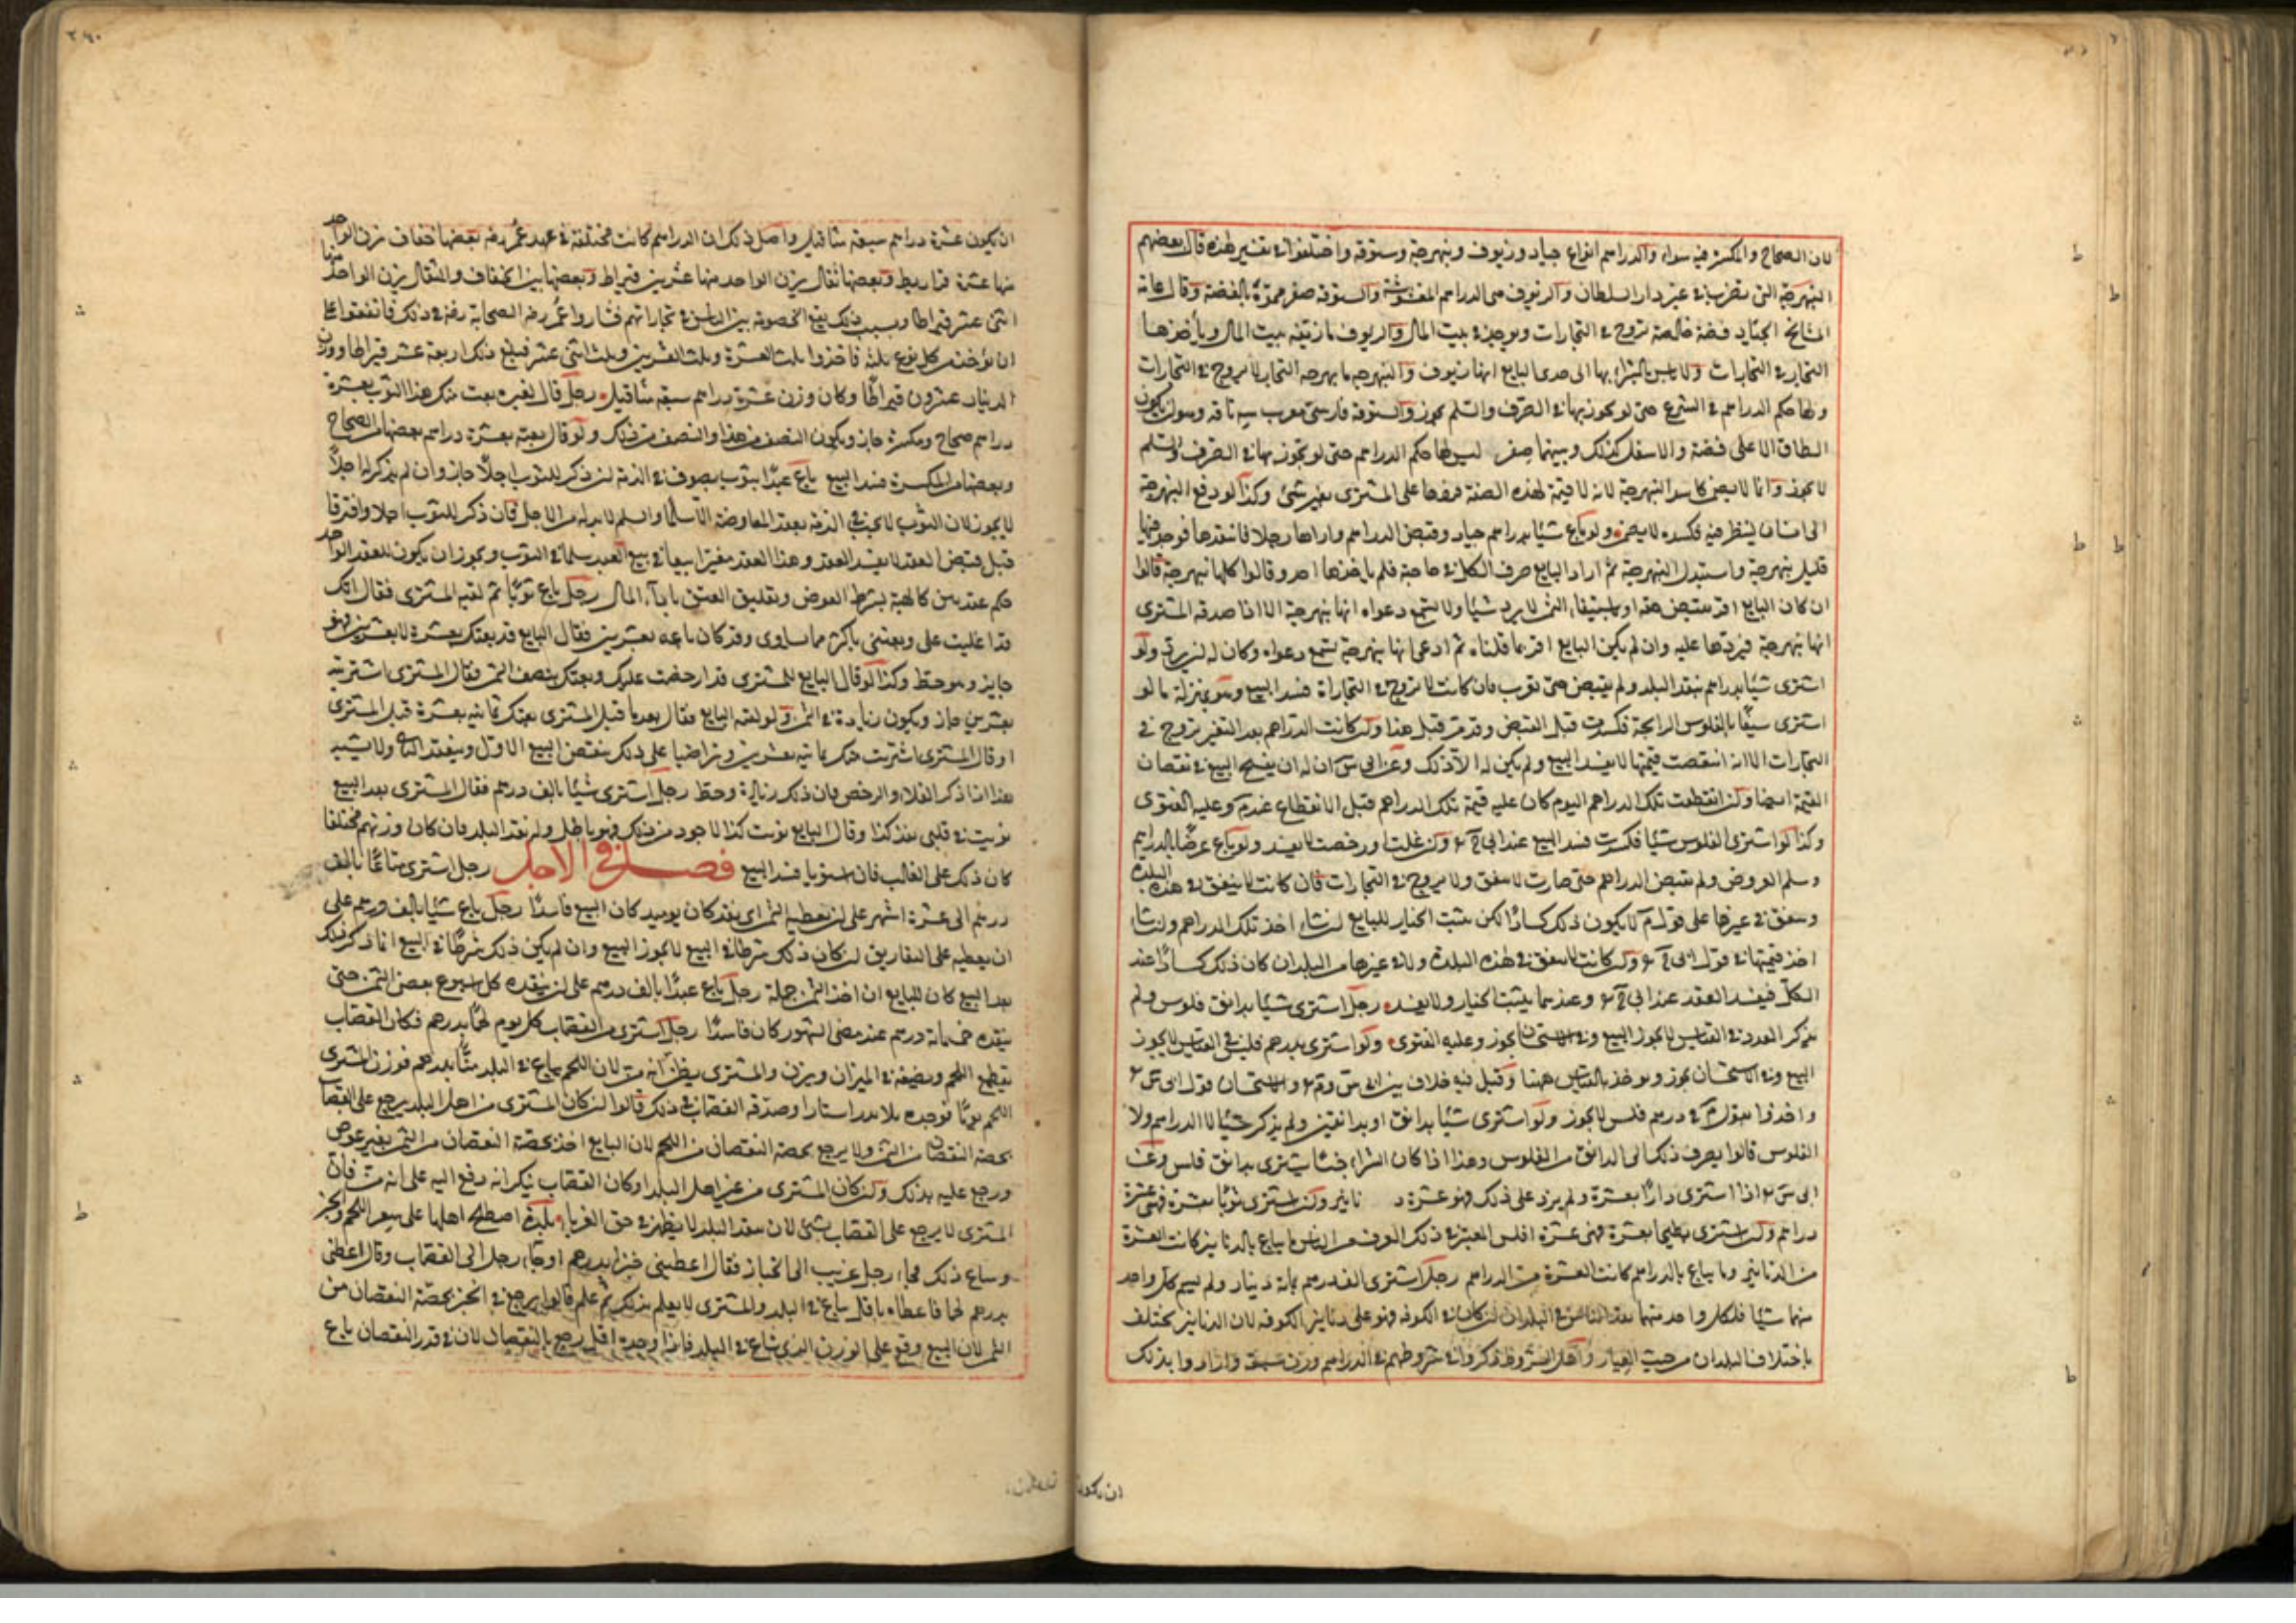 لان الصحاح والمكسرة فيه سواء والدراهم انواع جياد وزيوف ونبهرجة وستوقة واختلفوا في تفسير هذه قال بعضهم
النبهرجة التي تضرب في غير دار السلطان والزيوف هي الدراهم المغشوشة والستوقة صفر مموه بالفضة وقال عامة
المشايخ الجياد فضة خالصة تروج في التجارات ويوجد في بيت المال والزيوف ما زيفه بيت المال ويأخذها
التجار في التجارات ولا باس بالشراء بها اذا بين البايع انها زيوف والنبهرجة ما يبهرجه التجار لا يروج في التجارات
ولها حكم الدراهم في الشرع حتى لو تجوز بها في الصرف والسلم يجوز والستوقة فارسي معرب سه تاقه وهو ان يكون
الطاق الاعلى فضة والاسفل كذلك وبينهما صفر ليس لها حكم الدراهم حتى لو تجوز بها في الصرف والسلم
لا يجوز وانما لا يضمن كاسر النبهرجة لانه لا قيمة لهذه الصنعة فردها على المشتري بغير شئ وكذا لو دفع النبهرجة
الى انسان لينظر فيه فكسره لا يضمن ولو باع شيئا بدراهم جياد وقبض الدراهم واراها رجلا فانتقدها فوجد فيها
قليل نبهرجة واستبدل النبهرجة ثم اراد البايع صرف الكل في حاجة فلم ياخذها احد وقالوا كلها نبهرجة قالوا
ان كان البايع اقر بقبض حقه او باستيفاء الثمن لا يرد شيئا ولا تسمع دعواه انها نبهرجة الا اذا صدقه المشتري
انها نبهرجة فيردها عليه وان لم يكن البايع اقر بما قلناه ثم ادعى انها نبهرجة تسمع دعواه وكان له ان يرد ولو
اشترى شيئا بدراهم نقد البلد ولم يقبض حتى تغيرت فان كانت لا تروج في التجارة فسد البيع وهو بمنزلة ما لو
اشترى شيئا بالفلوس الرابحة فكسدت قبل القبض وقد مر قبل هذا وان كانت الدراهم بعد التغير تروج في
التجارات الا انه انتقصت قيمتها لا يفسد البيع ولم يكن له الا ذلك وعن ابي س ان له ان يفسخ البيع في نقصان
القيمة ايضا وان انقطعت تلك الدراهم اليوم كان عليه قيمة تلك الدراهم قبل الانقطاع عند م وعليه الفتوى
وكذا لو اشترى بالفلوس شيئا فكسدت فسد البيع عند ابي ح وان غلت او رخصت لا يفسد ولو باع عرضا بالدراهم
وسلم العروض ولم يقبض الدراهم حتى صارت لا تنفق ولا تروج في التجارات فان كانت لا ينفق في هذه البلدة
وتنفق في غيرها على قول م لا يكون ذلك كسادا لكن يثبت الخيار للبايع ان شاء اخذ تلك الدراهم وان شاء
اخذ قيمتها في قول ابي ح وان كانت لا ينفق في هذه البلدة ولا في غيرها من البلدان كان ذلك كسادا عند
الكل فيفسد العقد عند ابي ح وعندهما يثبت الخيار ولا يفسد رجل اشترى شيئا بدانق فلوس ولم
يذكر العدد في القياس لا يجوز البيع وفي الاستحسان يجوز وعليه الفتوى ولو اشترى بدرهم فلس في القياس لا يجوز
البيع وفي الاستحسان يجوز ويوخذ بالقياس ههنا وقيل فيه خلاف بين ابي س و م والاستحسان قول ابي س
واخذوا بقول م في درهم فلس لا يجوز ولو اشترى شيئا بدانق او بدانقين ولم يذكر شيئا لا الدراهم ولا
الفلوس قالوا يصرف ذلك الى الدانق من الفلوس وهذا اذا كان الشراء شيئا يشترى بدانق فلس وعن
ابي س اذا اشترى دارا بعشرة ولم يزد على ذلك فهو عشرة د نانير وان اشترى ثوبا بعشرة فهي عشرة
دراهم وان اشترى بطيخا بعشرة فهي عشرة افلس المعتبر في ذلك العرف من الناس ما يباع بالدنانير كانت العشرة
من الدنانير وما يباع بالدراهم كانت العشرة من الدراهم رجل اشترى الف درهم بماية دينار ولم يسم كل واحد
منهما شيئا فلكل واحد منهما نقد الناس في البلد ان كان في الكوفة فهو على دنانير الكوفة لان الدنانير يختلف
باختلاف البلدان من حيث العيار واهل الشروط ذكروا في شروطهم في الدراهم وزن سبعة وارادوا بذلك
ان يكون
٢٩٠
ان يكون عشرة دراهم سبعة مثاقيل واصل ذلك ان الدراهم كانت مختلفة في عهد عمر رضه بعضها خفاف يزن الواحد
منها عشرة قراريط وبعضها ثقال يزن الواحد منها عشرين قيراط وبعضها بين الخفاف والثقال يزن الواحد منها
اثنى عشر قيراطا وبسبب ذلك يقع الخصومة بين الناس في تجاراتهم فشاروا عمر رضه الصحابة رضه في ذلك فاتفقوا على
ان يؤخذ من كل نوع ثلثه فاخذوا ثلث العشرة وثلث العشرين وثلث اثنى عشر فبلغ ذلك اربعة عشر قيراطا ووزن
الدينار عشرون قيراطا وكان وزن عشرة دراهم سبعة مثاقيل رجل قال لغيره بعت منك هذا الثوب بعشرة
دراهم صحاح ومكسرة جاز ويكون النصف من هذا والنصف من ذلك ولو قال بعته بعشرة دراهم بعضها من الصحاح
وبعضها من المكسرة فسد البيع باع عبدا بثوب موصوف في الذمة ان ذكر للثوب اجلا جاز وان لم يذكر له اجلا
لا يجوز لان الثوب لا يجب في الذمة بعقد المعاوضة الا سلما والسلم لا بد له من الاجل فان ذكر للثوب اجلا وافترقا
قبل قبض العبد لا يفسد العقد وهذا العقد معتبر بيعا في بيع العبد سلما في الثوب ويجوز ان يكون للعقد الواحد
حكم عقدين كالهبة بشرط العوض وتعليق العتق باداء المال رجل باع ثوبا ثم لقيه المشتري فقال انك
قد اغليت علي وبعتني باكثر مما يساوي وقد كان باعه بعشرين فقال البايع قد بعتك بعشرة لا بعشرين فهو
جايز وهو حط وكذا لو قال البايع للمشتري قد ارخصت عليك وبعتك بنصف الثمن فقال المشتري اشتريته
بعشرين جاز ويكون زيادة في الثمن ولو لقيه البايع فقال بعد ما قبل المشتري بعتك ثانيه بعشرة قبل المشتري
او قال المشتري اشتريت منك ثانيه بعشرين وتراضيا على ذلك ينتقض البيع الاول وينعقد الثاني ولا يشبه
هذا اذا ذكر الغلاء والرخص فان ذلك زيادة وحط رجل اشترى شيئا بالف درهم فقال المشتري بعد البيع
نويت في قلبي نقد كذا وقال البايع نويت كذا لاجود من ذلك فهو باطل وله نقد البلد فان كان وزنهم مختلفا
كان ذلك على الغالب فان استويا فسد البيع فصل في الاجل رجل اشترى متاعا بالف
درهم الى عشرة اشهر على ان يعطيه الثمن اي نقد كان يوميد كان البيع فاسدا رجل باع شيئا بالف درهم على
ان يعطيه على التفاريق ان كان ذلك شرطا في البيع لا يجوز البيع وان لم يكن ذلك شرطا في البيع انما ذكر ذلك
بعد البيع كان للبايع ان اخذ الثمن جملة رجل باع عبدا بالف درهم على ان ينقده كل اسبوع بعض الثمن حتى
ينقده خمسماية درهم عند مضي الشهور كان فاسدا رجل اشترى من القصاب كل يوم لحما بدرهم فكان القصاب
يقطع اللحم ويضعه في الميزان ويزن والمشتري يظن انه من لان اللحم يباع في البلد منا بدرهم فوزن المشتري
اللحم يوما فوجده ثلاثين استارا وصدقه القصاب في ذلك قالوا ان كان المشتري من اهل البلد يرجع على القصاب
بحصة النقصان من الثمن ولا يرجع بحصة النقصان من اللحم لان البايع اخذ بحصة النقصان من الثمن بغير عوض
ورجع عليه بذلك وان كان المشتري من غير اهل البلد او كان القصاب ينكر انه دفع اليه على انه من فان
المشتري لا يرجع على القصاب بشئ لان سعر البلد لا يظهر في حق الغرباء بلدة اصطلح اهلها على سعر اللحم والخبز
وشاع ذلك فجاء رجل غريب الى الخباز فقال اعطيني خبزا بدرهم او جاء رجل الى القصاب وقال اعطني
بدرهم لحما فاعطاه باقل يباع في البلد والمشتري لا يعلم بذلك ثم علم قالوا يرجع في الخبز بحصة النقصان من
الثمن لان البيع وقع على الوزن الذي شاع في البلد فاذا وجده اقل رجع بالنقصان لان في قدر النقصان باع